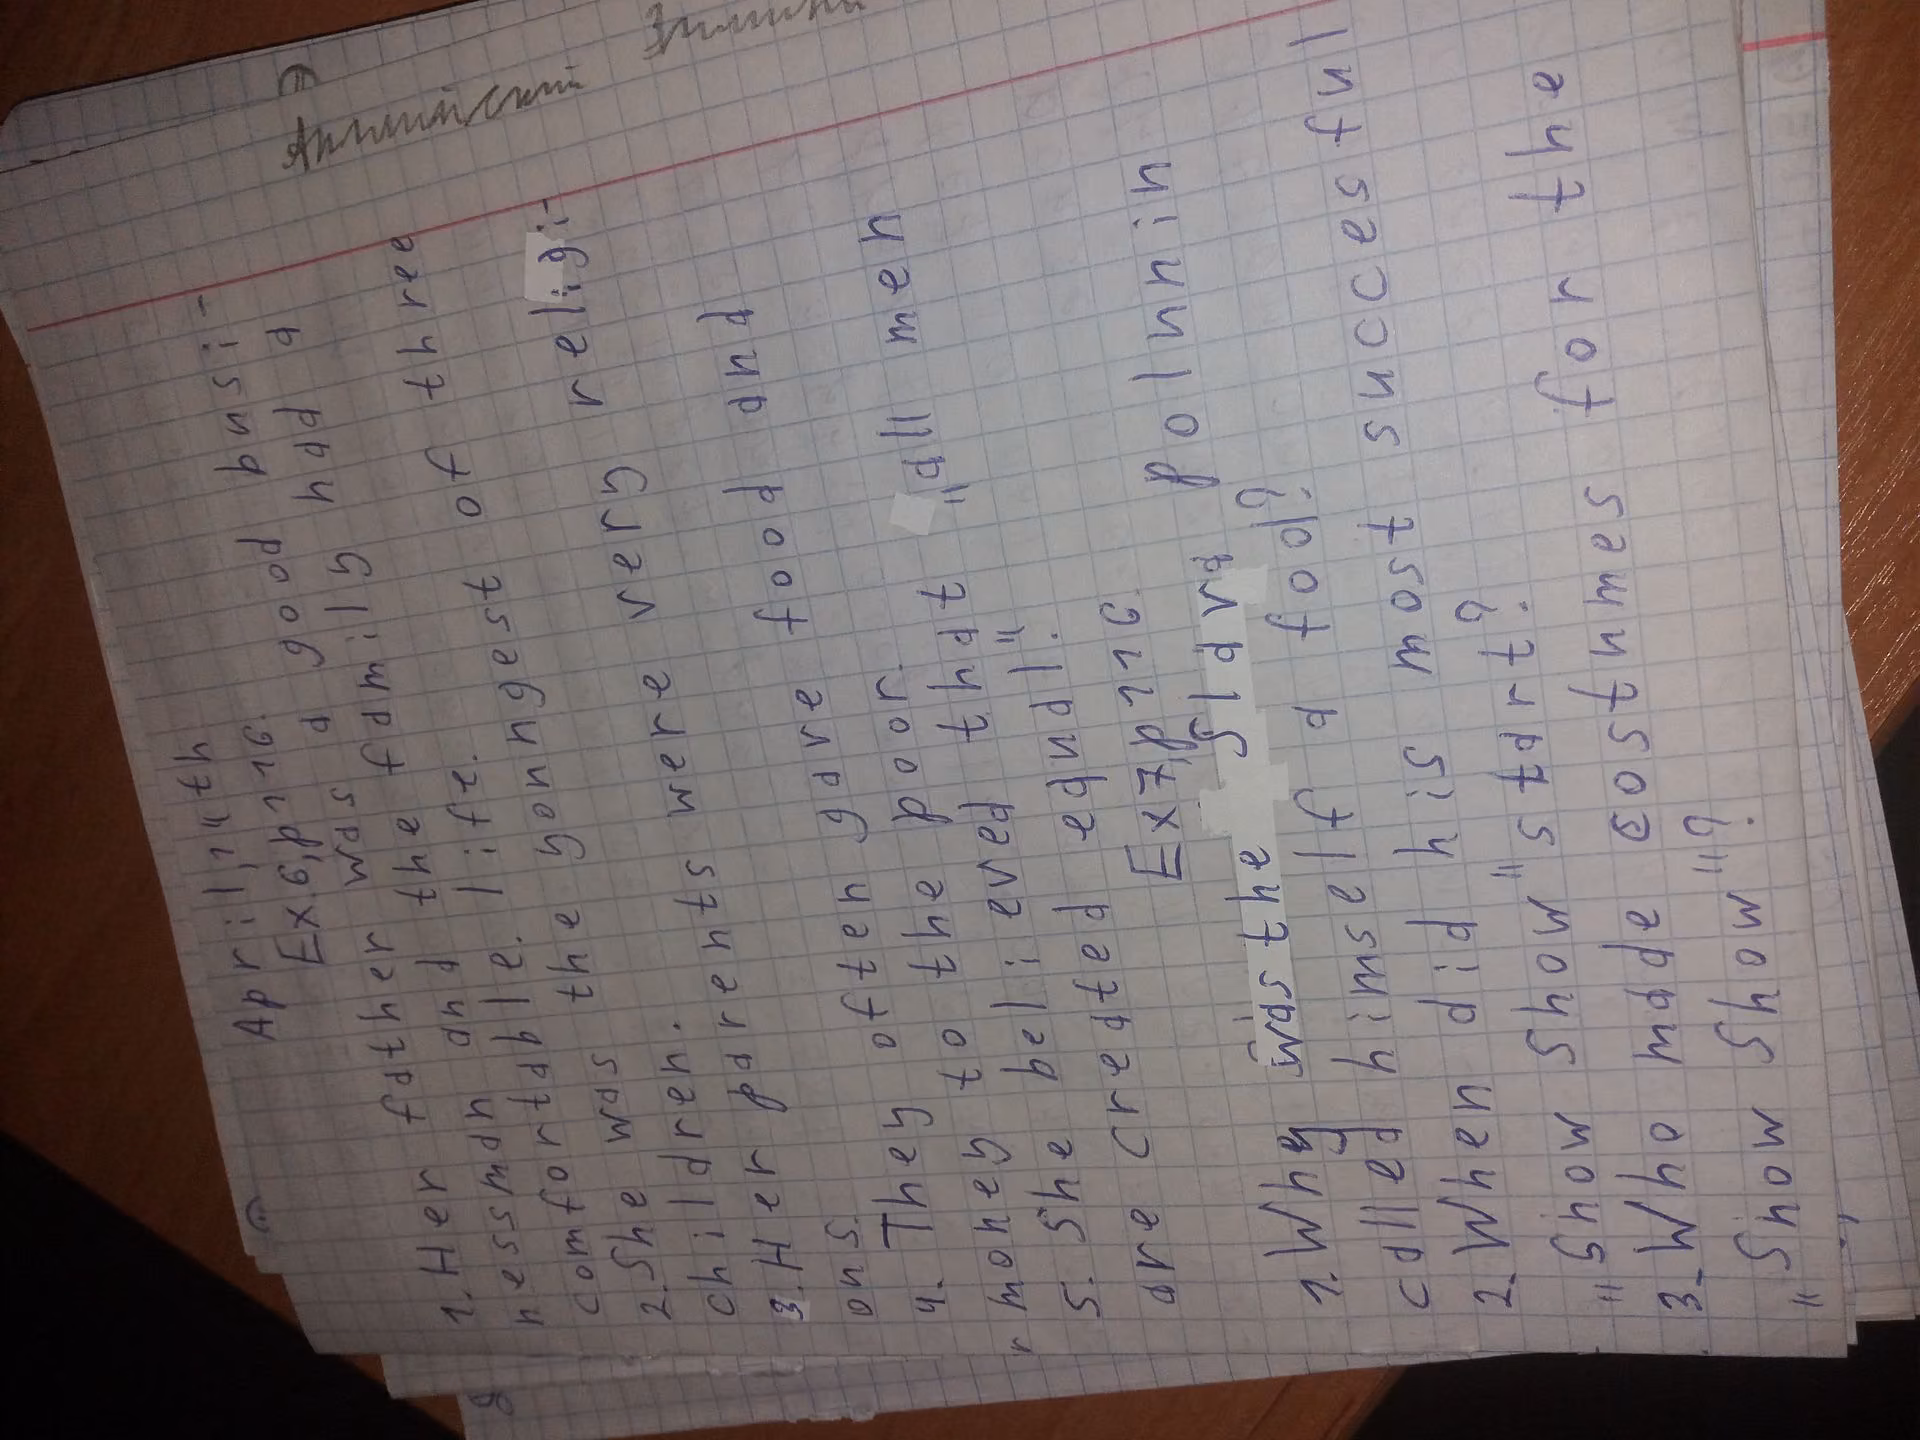 Английский
April, 14th
Ex. 6, p 116.
1. Her father was a good busi-
nessman and the family had a
comfortable life.
2. She was the youngest of three
children.
3. Her parents were very religi-
ons.
4. They often gave food and
money to the poor.
5. She believed that "all men
are created equal".
Ex 7, p 116.
1. Why was the Slava polunin
called himself a fool?
2. When did his most succesful
"Show Show" start?
3. Who made costumes for the
"Show Show"?